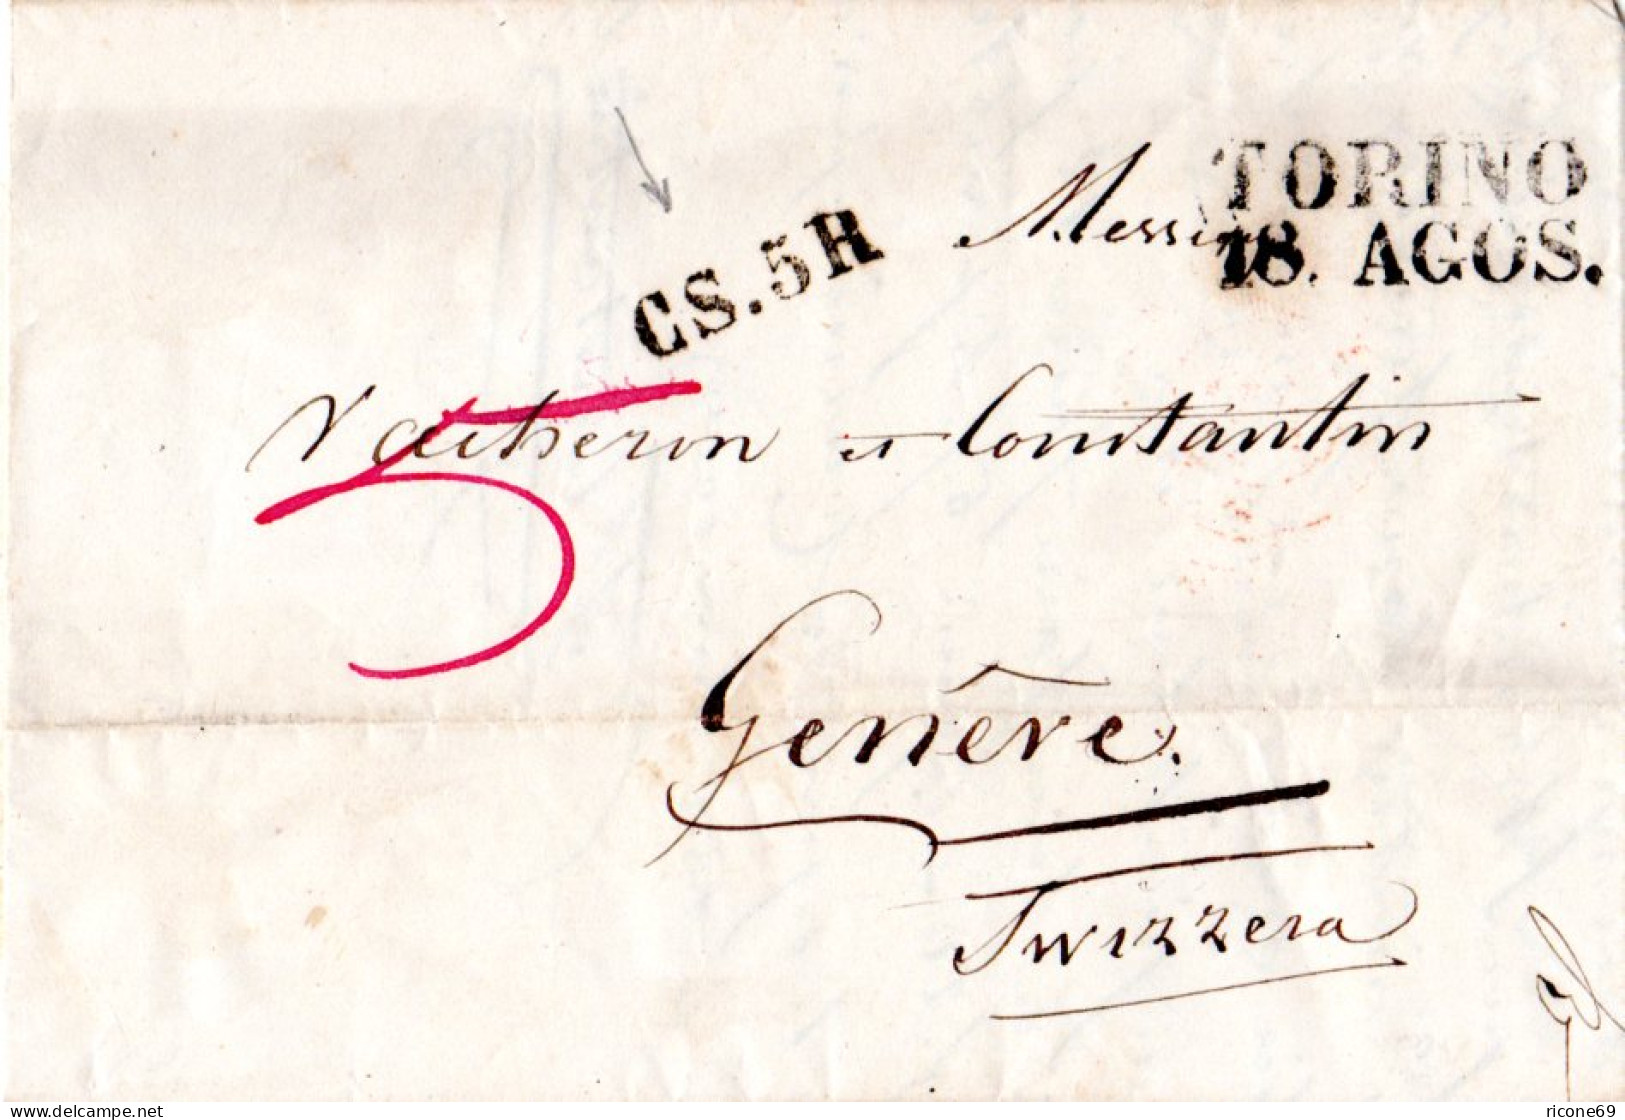 TORINO
18. AGOS.
CS.5R
Vacheron et Constantin
5
Genêve.
Swizzera
www.delcampe.net
ricone69